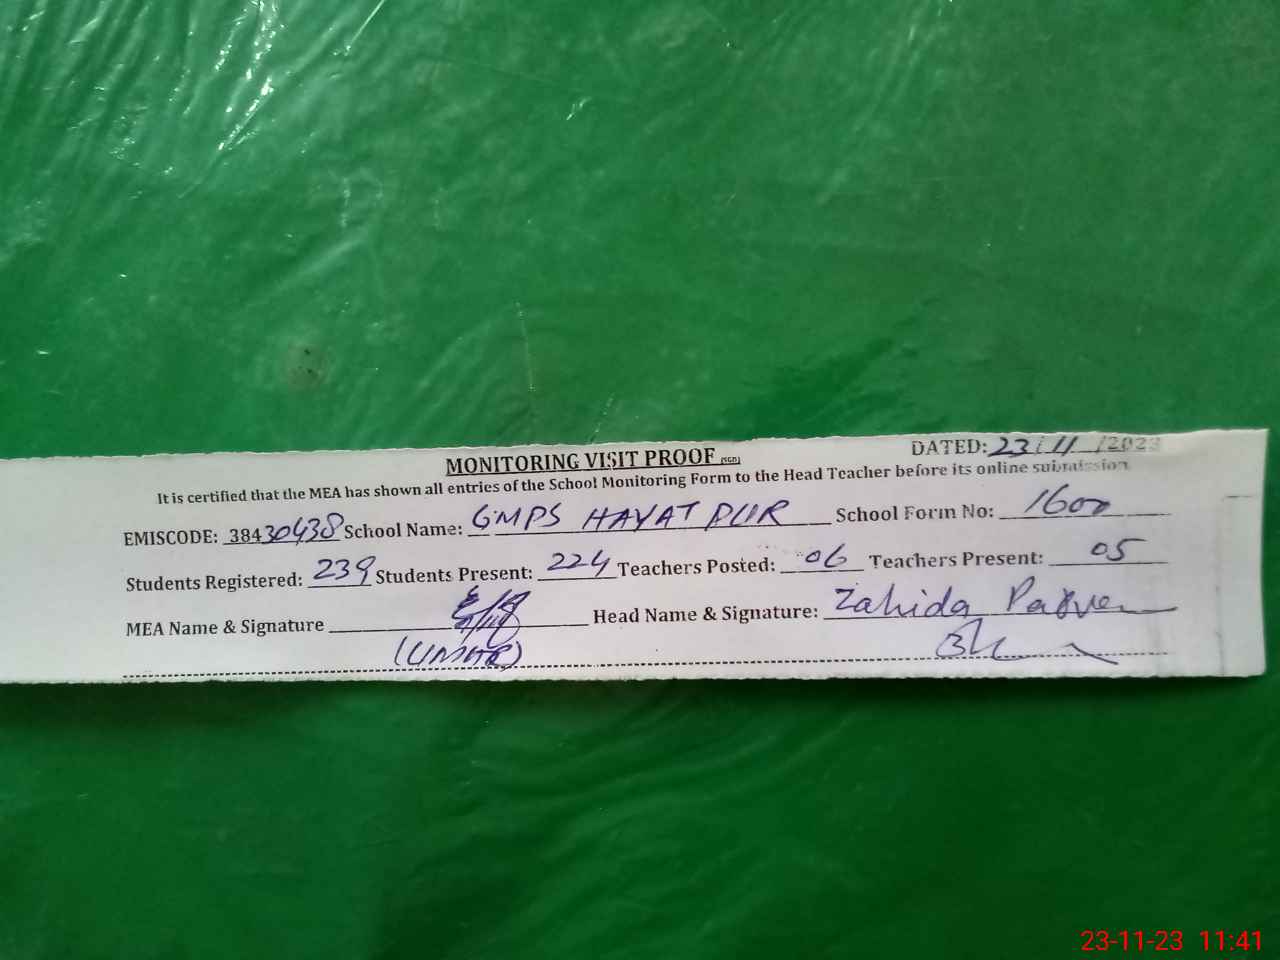 DATED: 23/11/2023
MONITORING VISIT PROOF (SGD)
It is certified that the MEA has shown all entries of the School Monitoring Form to the Head Teacher before its online submission.
EMISCODE: 38430438 School Name: GMPS HAYAT PUR School Form No: 1600
Students Registered: 239 Students Present: 224 Teachers Posted: 06 Teachers Present: 05
MEA Name & Signature Head Name & Signature: Zahida Parveen
(UMAR)
23-11-23 11:41